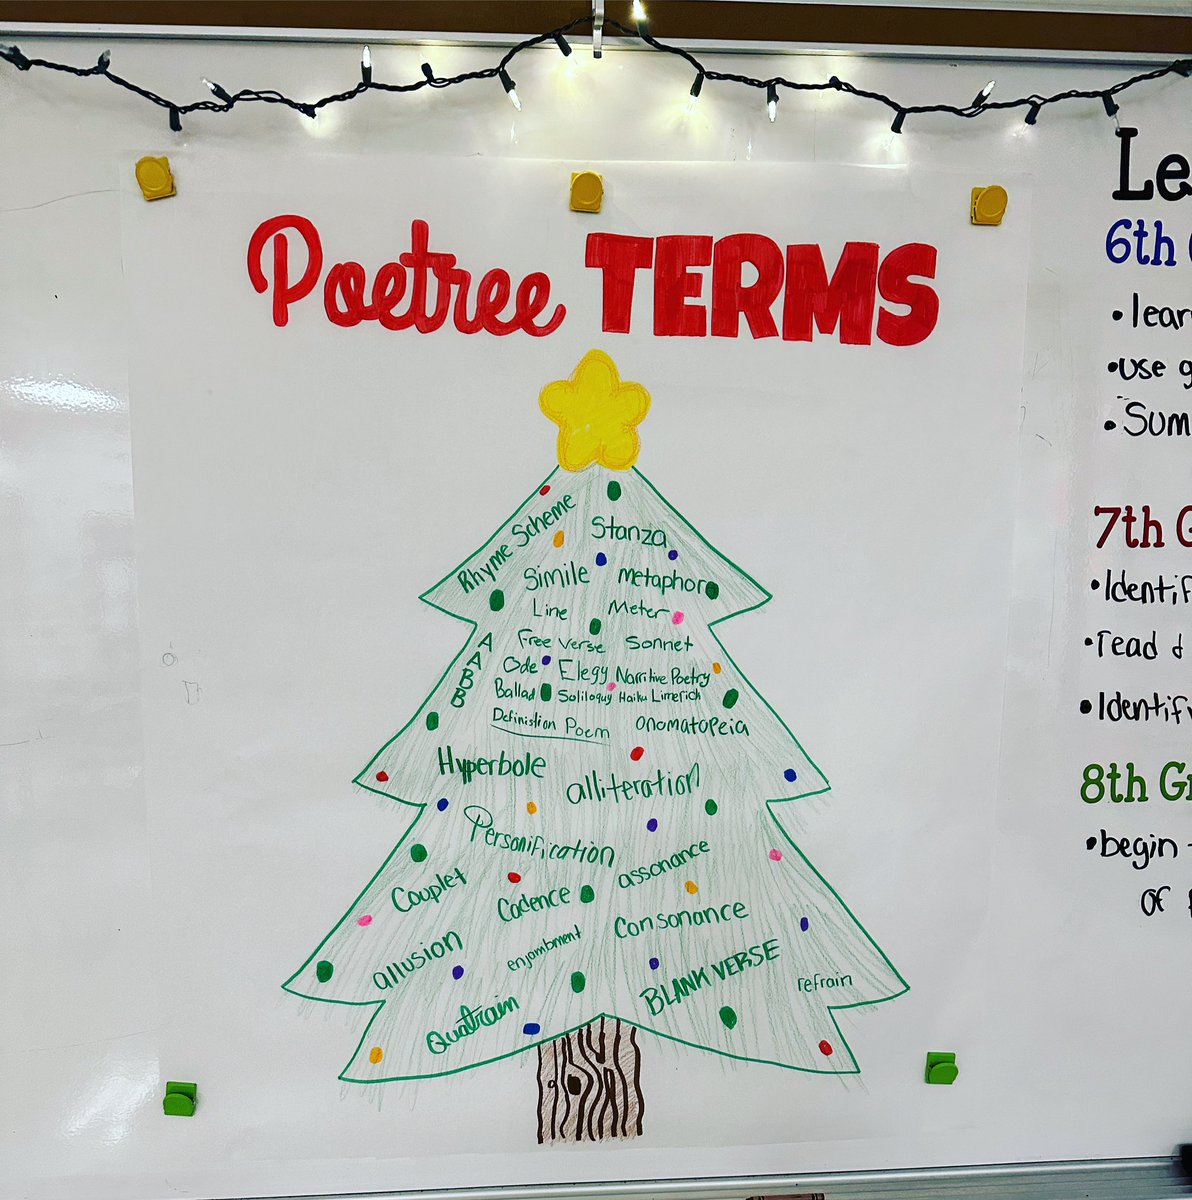 Poetree TERMS
Rhyme Scheme
Stanza
Simile metaphor
Line Meter
AABB
Free verse Sonnet
Ode Elegy Narritive Poetry
Ballad Soliloquy Haiku Limerick
Definistion Poem onomatopeia
Hyperbole
alliteration
Personification
assonance
Couplet
Cadence
Consonance
allusion
enjambment
BLANK VERSE
refrain
Quatrain
Le
6th
• lear
• use g
• Sum
7th G
• Identif
• read &
• Identify
8th Gr
• begin
of